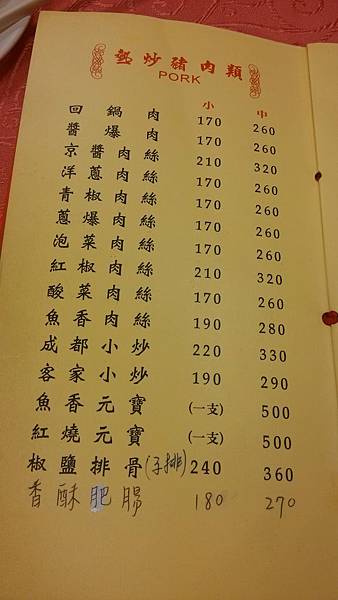 熱炒豬肉類
PORK
小 中
回鍋肉 170 260
醬爆肉 170 260
京醬肉絲 210 320
洋蔥肉絲 170 260
青椒肉絲 170 260
蔥爆肉絲 170 260
泡菜肉絲 170 260
紅椒肉絲 210 320
酸菜肉絲 170 260
魚香肉絲 190 280
成都小炒 220 330
客家小炒 190 290
魚香元寶 (一支) 500
紅燒元寶 (一支) 500
椒鹽排骨(子排) 240 360
香酥肥腸 180 270